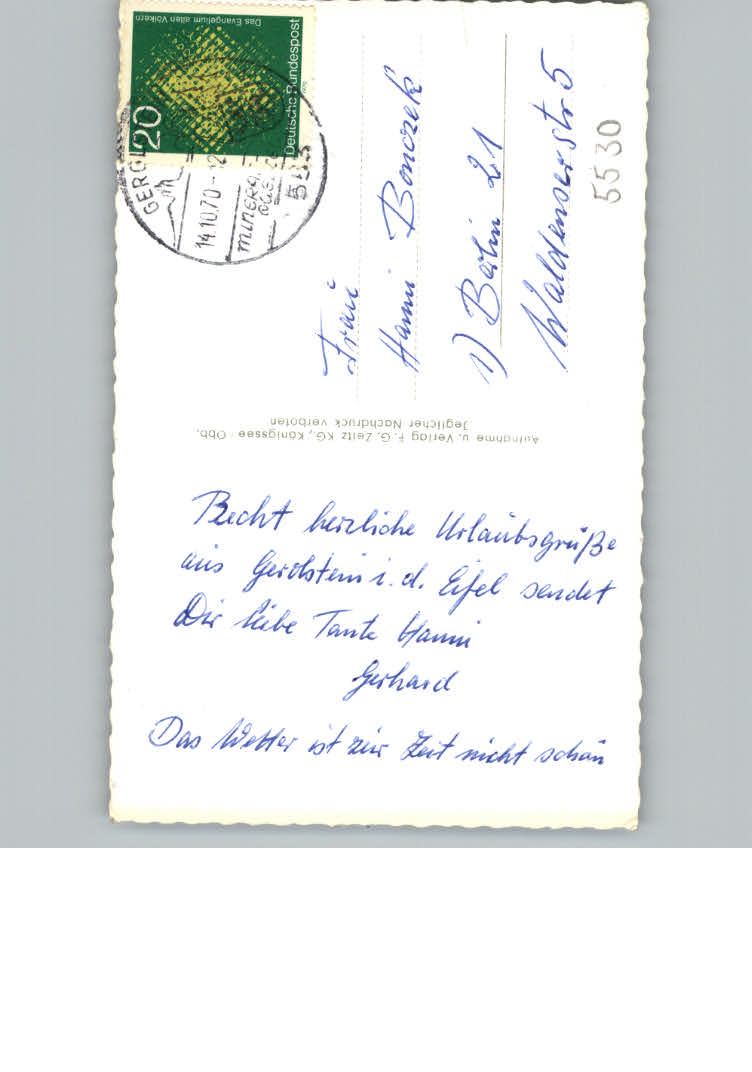 Das Evangelium allen Völkern
Deutsche Bundespost
20
GEROL
14.10.70
Frau
Hanni Bonczek
1) Berlin 21
Waldenserstr 5
5530
Aufnahme u. Verlag F. G. Zeitz KG., Königssee/Obb.
Jeglicher Nachdruck verboten
Recht herzliche Urlaubsgrüße
aus Gerolstein i. d. Eifel sendet
Dir liebe Tante Hanni
Gerhard
Das Wetter ist zur Zeit nicht schön